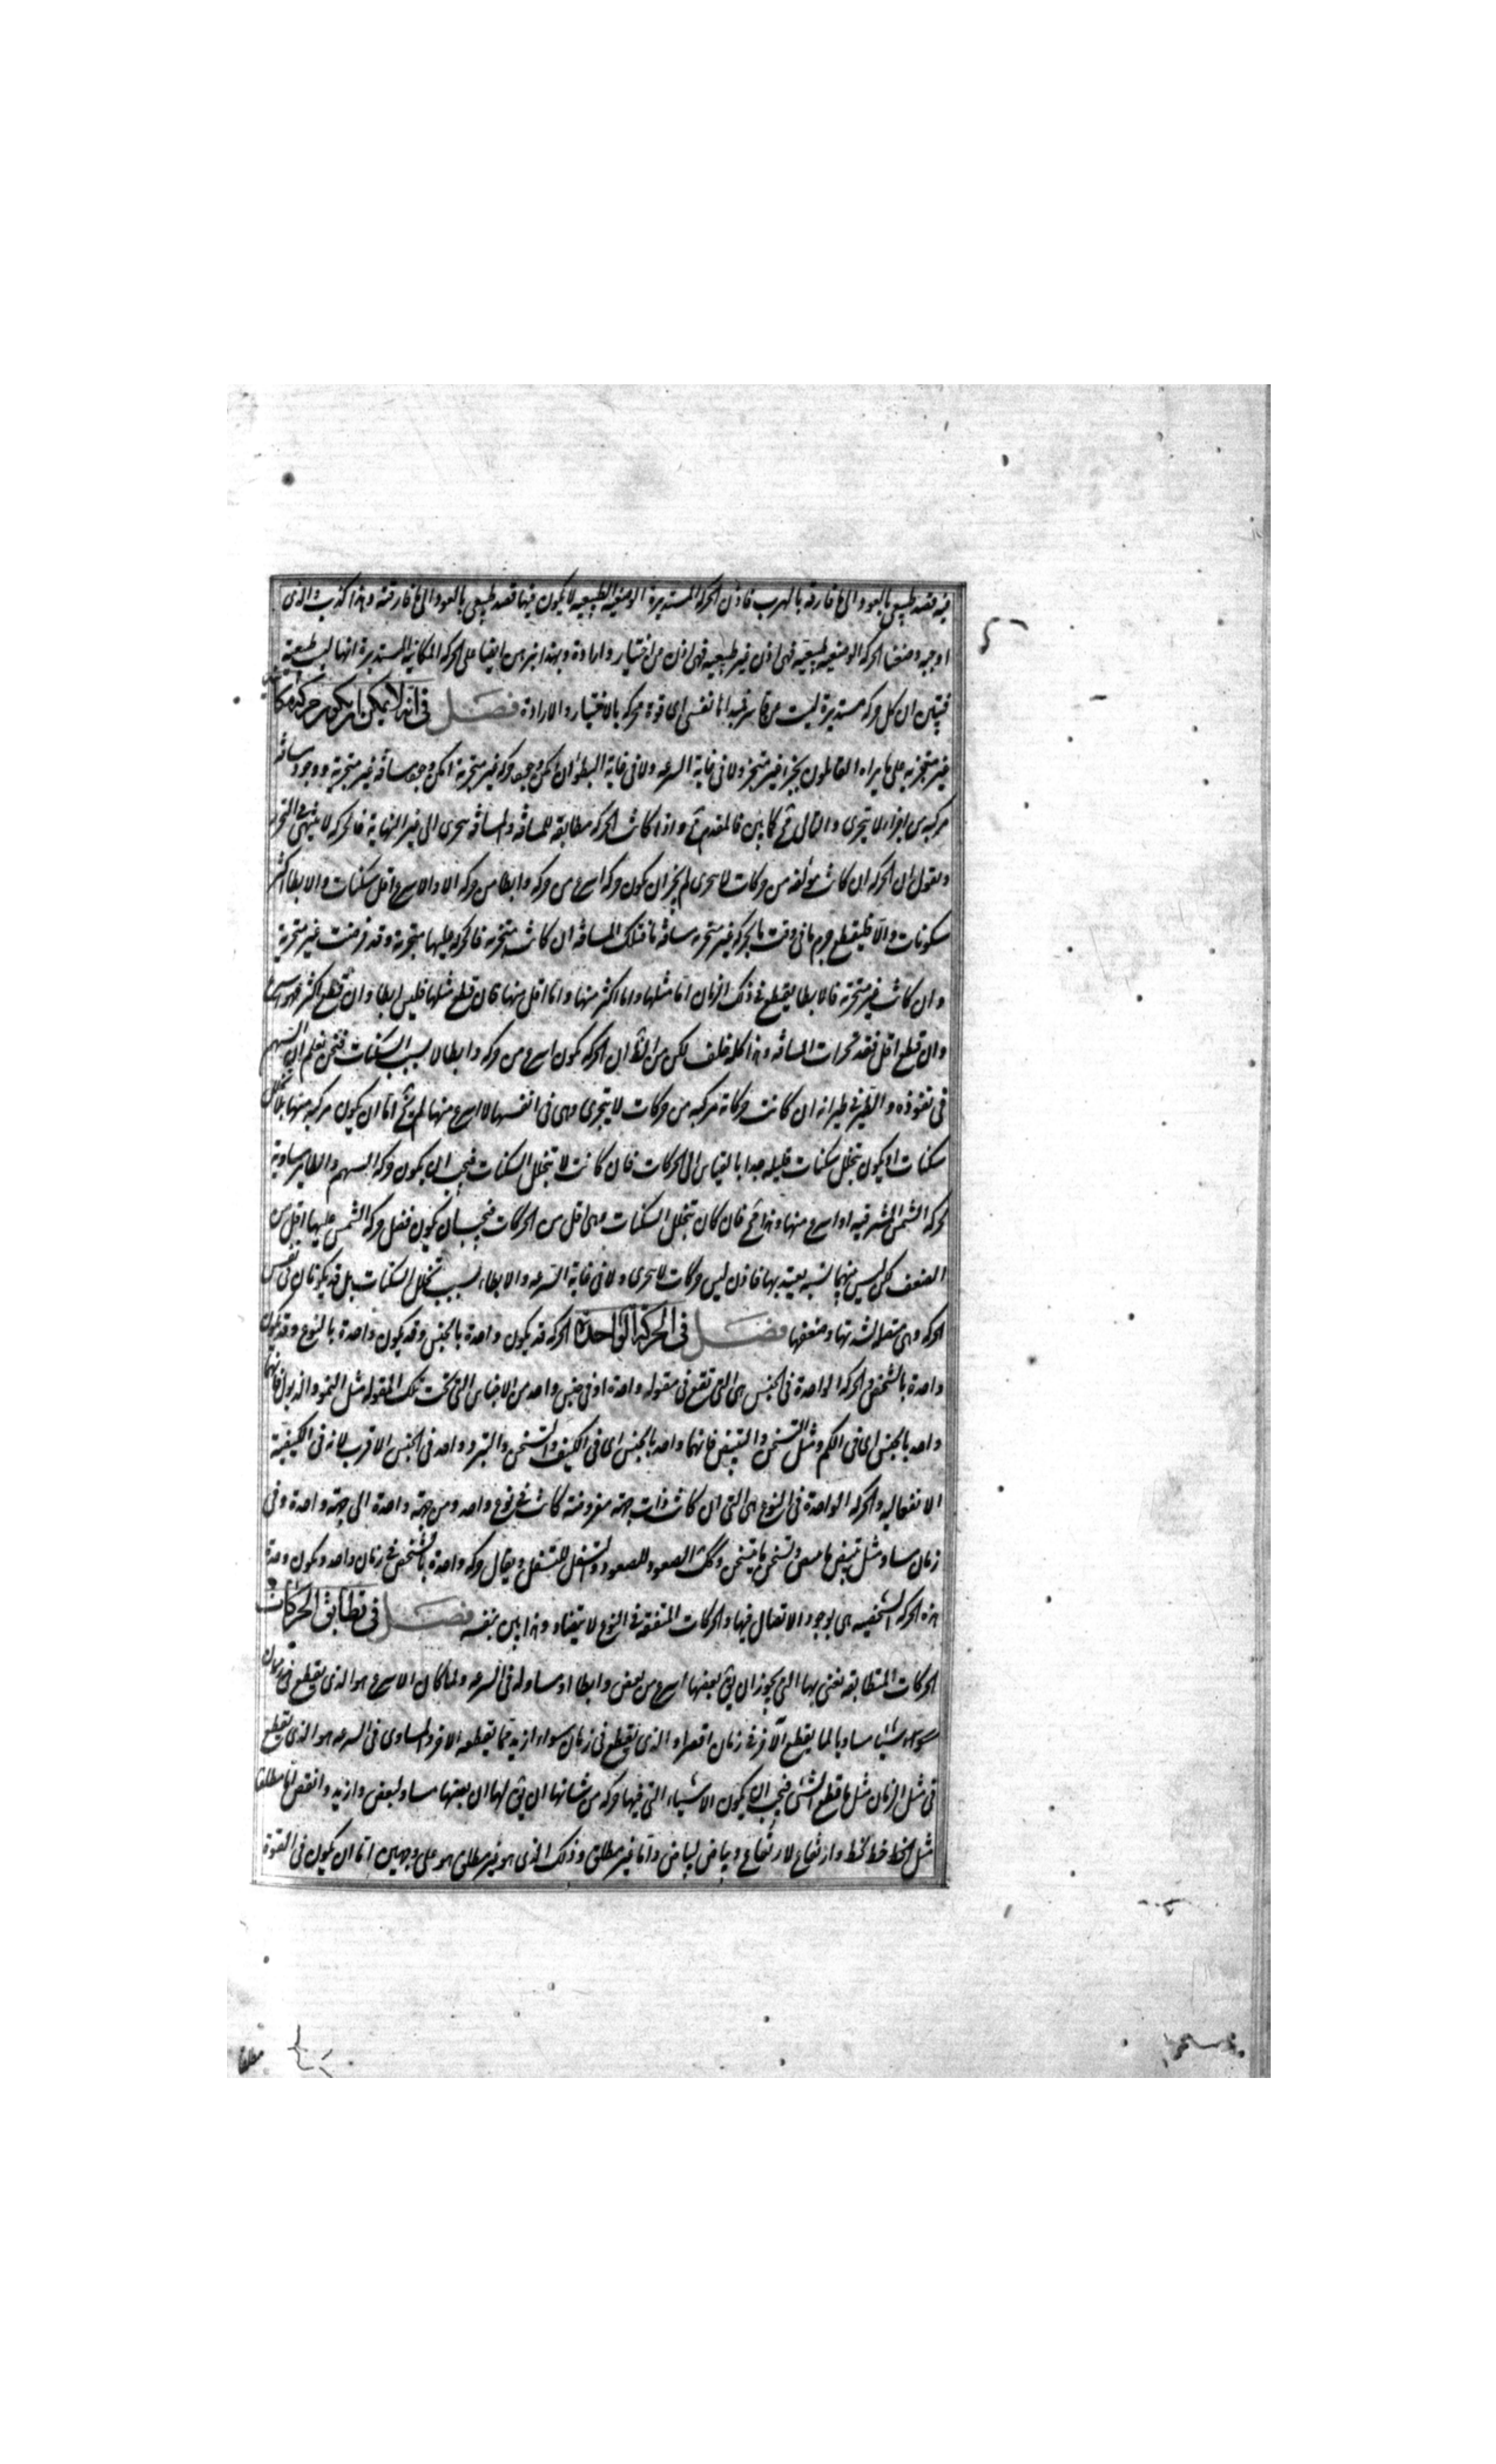 فيه قصد طبيعى بالعود الى ما فارقه بالهرب فاذن الحركة المستديرة الوضعية الطبيعية لا يكون فيها قصد طبيعى بالعود الى ما فارقته وهذا كذب والذى
اوجبه وضعنا الحركة الوضعية طبيعية فهى اذن غير طبيعية فهى اذن من اختيار وارادة وبهذا نبرهن ايضا على الحركة المكانية المستديرة انها ليست طبيعية
فتبين ان كل حركة مستديرة ليست من قاسر فمبداها نفس اى قوة محركة بالاختيار والارادة فصل فى انه لا يمكن ان يكون حركة مكانية
غير متجزية على ما يراه القائلون بجزء غير متجز ولا فى غاية السرعه ولا فى غاية البطؤ ان امكن وجود حركة غير متجزية امكن وجود مسافة غير متجزية ووجود مسافة
مركبة من اجزاء لا يتجزى والتالى مح كما بين فالمقدم مح واذا كانت الحركة مطابقة للمسافة والمسافة تتجزى الى غير النهاية فالحركة لا ينتهى فى التجزى
ونقول ان الحركة ان كانت مؤلفه من حركات لا تتجزى لم يجز ان يكون حركة اسرع من حركة وابطا من حركة الا والاسرع اقل سكنات والابطا اكثر
سكونات والا فليقطع جرم ما فى وقت ما بحركة غير متجزية مسافة ما فتلك المسافة ان كانت متجزية فالحركة عليها متجزية وقد فرضت غير متجزية
وان كانت غير متجزية فالابطا يقطع فى ذلك الزمان اما مثلها واما اكثر منها واما اقل منها فان قطع مثلها فليس ابطا وان قطع اكثر فهو اسرع
وان قطع اقل فقد تجزات المسافة وهذا كله خلف لكن من الظ ان الحركة تكون اسرع من حركة وابطا لا بسبب السكنات فنحن نعلم ان السهم
فى نفوذه والطير فى طيرانه ان كانت حركاته مركبة من حركات لا يتجزى وهى فى انفسها لا اسرع منها لم يخ اما ان يكون مركبة منها بلا تخلل
سكنات او يكون بتخلل سكنات قليله جدا بالقياس الى الحركات فان كانت لا بتخلل السكنات فيجب ان يكون حركة السهم والطاير مساوية
لحركة الشمس الشرقيه او اسرع منها وهذا مح فان كان بتخلل السكنات وهى اقل من الحركات فيجب ان يكون فضل حركة الشمس عليها اقل من
الضعف لكن ليس بينهما نسبه يعتد بها فاذن ليس حركات لا تتجزى ولا فى غاية السرعه والابطاء لسبب تخلل السكنات بل قد يكونان فى نفس
الحركة وهى متصلة لشدتها وضعفها فصل فى الحركة الواحدة الحركة قد يكون واحدة بالجنس وقد يكون واحدة بالنوع وقد يكون
واحدة بالشخص والحركة الواحدة فى الجنس هى التى تقع فى مقوله واحدة او فى جنس واحد من الاجناس التى تحت تلك المقوله مثل النمو والذبول فانهما
واحد بالجنس اى فى الكم ومثل التسخن والتبيض فانهما واحد بالجنس اى فى الكيف والتسخن والتبرد واحد فى الجنس الاقرب لانه فى الكيفية
الانفعاليه والحركة الواحدة فى النوع هى التى ان كانت ذات جهة مفروضة كانت فى نوع واحد ومن جهة واحدة الى جهة واحدة وفى
زمان مساو مثل تبيض ما يبيض وتسخن ما يتسخن وكك الصعود للصعود والتسفل للتسفل ويقال حركة واحدة بالشخص فى زمان واحد ويكون وحدة
هذه الحركة الشخصيه هى بوجود الاتصال فيها والحركات المتفقة فى النوع لا يتضاد وهذا بين بنفسه فصل فى تطابق الحركات
الحركات المتطابقة نعنى بها التى يجوز ان يق بعضها اسرع من بعض وابطا او مساو له فى السرعه ولما كان الاسرع هو الذى يقطع فى
سواء شيئا مساويا لما يقطع الاخر فى زمان اقصر او الذى يقطع فى زمان سواء ازيد مما يقطعه الاخر والمساوى فى السرعه هو الذى يقطع
فى مثل الزمان مثل ما قطع الشئ فيجب ان يكون الاشياء التى فيها حركة من شانها ان يق لها ان بعضها مساو لبعض وازيد وانقص اما مطلقا
مثل الخط خط لخط وارتفاع لارتفاع وبياض لبياض واما غير مطلق وذلك الذى هو غير مطلق هو على وجهين اما ان يكون فى القوة
مطلقا